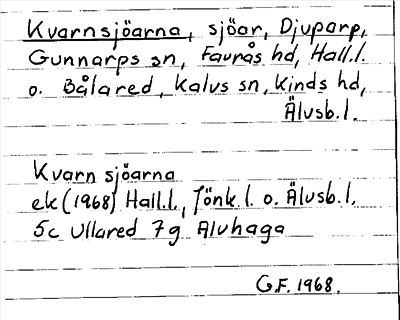 Kvarnsjöarna, sjöar, Djuparp,
Gunnarps sn, Faurås hd, Hall.l.
o. Bålared, Kalvs sn, Kinds hd,
Älvsb.l.
Kvarnsjöarna
ek (1968) Hall.l., Jönk.l. o. Älvsb.l.
5c Ullared 7g Alvhaga
G.F. 1968.